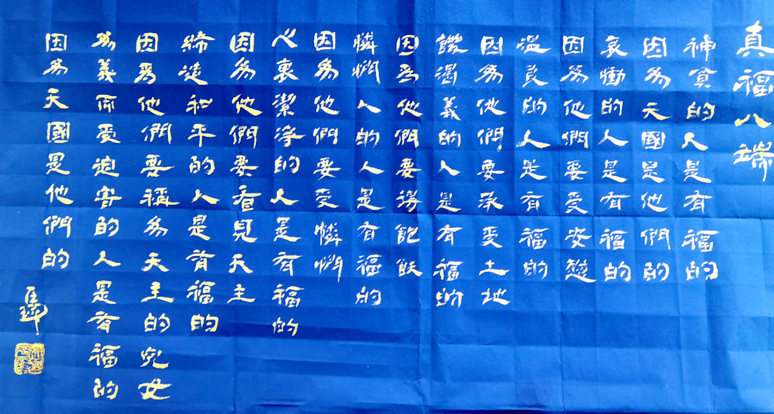 真福八端
神貧的人是有福的
因為天國是他們的
哀慟的人是有福的
因為他們要受安慰
溫良的人是有福的
因為他們要承受土地
饑渴義的人是有福的
因為他們要得飽飫
憐憫人的人是有福的
因為他們要受憐憫
心裏潔淨的人是有福的
因為他們要看見天主
締造和平的人是有福的
因為他們要稱為天主的兒女
為義而受迫害的人是有福的
因為天國是他們的